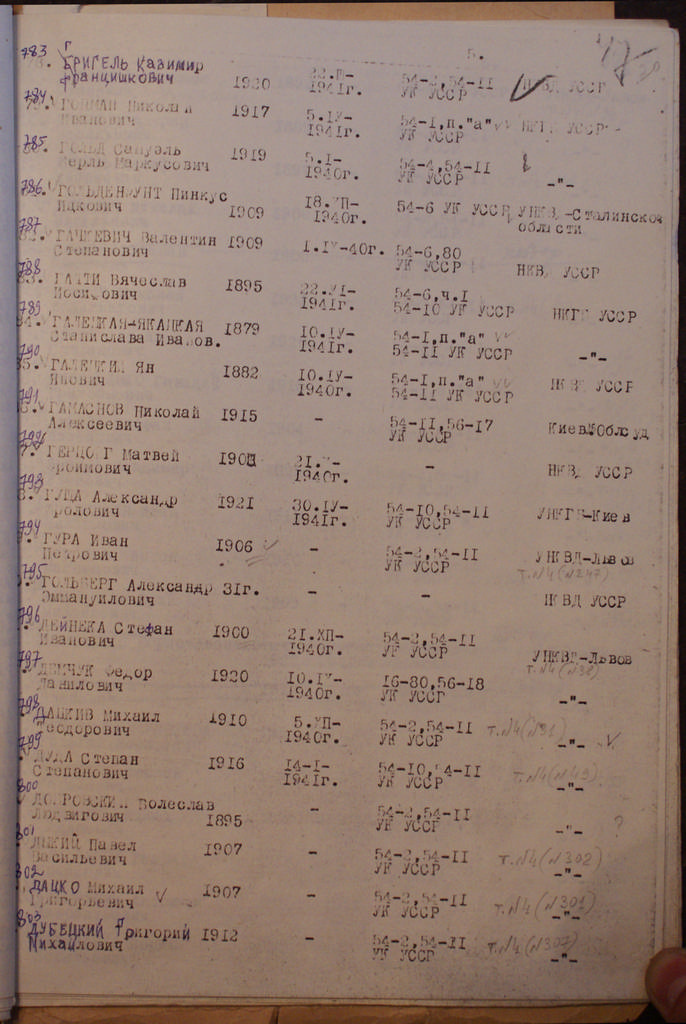 5.
783 г
БРИГЕЛЬ Казимир
Францишкович 1920 1941г. 54-2,54-11 УК УССР НКВД УССР
784
Николай
Иванович 1917 5.IУ-1941г. 54-1,п."а" УК УССР НКГБ УССР
785
ГОЛЬД Самуэль
Берль Маркусович 1919 5.I-1940г. 54-4,54-11 УК УССР -"-
786.
Пинкус
Ицкович 1909 18.УП-1940г. 54-6 УК УССР УНКВД-Сталинской области
787
ГАЧКЕВИЧ Валентин
Степанович 1909 1.IУ-40г. 54-6,80 УК УССР НКВД УССР
788
Вячеслав
Иосифович 1895 22.УI-1941г. 54-6,ч.I 54-10 УК УССР НКГБ УССР
789
Станислава Иванов. 1879 10.IУ-1941г. 54-1,п."а" 54-11 УК УССР -"-
790
Ян
Янович 1882 10.IУ-1940г. 54-1,п."а" 54-11 УК УССР НКВД УССР
791
Николай
Алексеевич 1915 - 54-11,56-17 УК УССР Киев.Облсуд
792
ГЕРЦОГ Матвей
1940г. - НКВД УССР
793
ГУЩА Александр
1921 30.IУ-1941г. 54-10,54-11 УК УССР УНКГБ-Киев
794
ГУРА Иван
Петрович 1906 - 54-2,54-11 УК УССР УНКВД-Львов
т.№4(№247)
795
ГОЛЬБЕРГ Александр
Эммануилович 31г. - - НКВД УССР
796
ДЕЙНЕКА Стефан
Иванович 1900 21.ХП-1940г. 54-2,54-11 УК УССР УНКВД-Львов
797
ДЕМЧУК Федор
Данилович 1920 10.IУ-1940г. 16-80,56-18 УК УССР -"-
т.№4(№38)
798
ДАЦКИВ Михаил
Теодорович 1910 5.УП-1940г. 54-2,54-11 УК УССР т.№4(№91) -"-
799
ДУДА Степан
Степанович 1916 14-I-1941г. 54-10,54-11 УК УССР т.№4(№49) -"-
800
Болеслав
Людвигович 1895 - 54-2,54-11 УК УССР -"- ?
801
ДИКИЙ Павел
Васильевич 1907 - 54-2,54-11 УК УССР т.№4(№302) -"-
802
ДАЦКО Михаил
Григорьевич 1907 - 54-2,54-11 УК УССР т.№4(№301) -"-
803
ДУБЕЦКИЙ Григорий
Михайлович 1912 - 54-2,54-11 УК УССР т.№4(№307) -"-